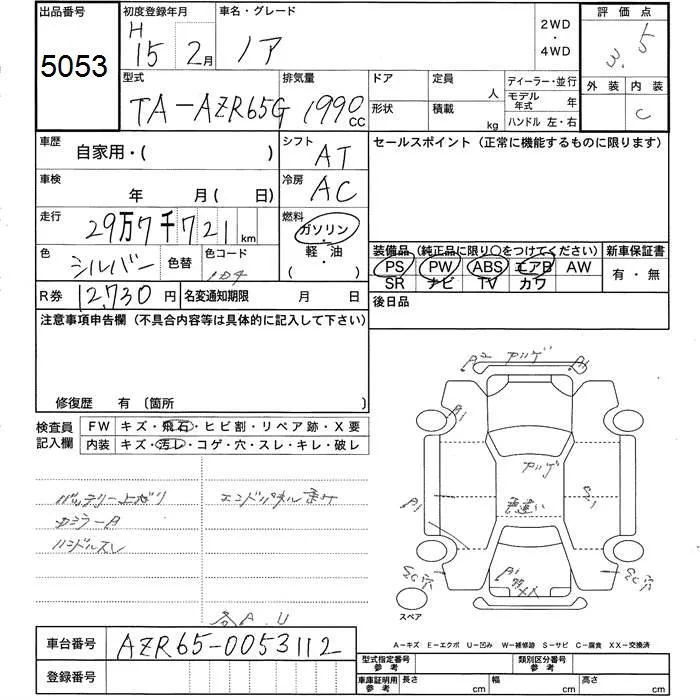 出品番号 初度登録年月 車名・グレード 2WD・4WD 評価点
5053 H 15 2月 ノア 3.5
型式 排気量 ドア 定員 人 ディーラー・並行 外装 内装
TA-AZR65G 1990 CC 形状 積載 kg モデル年式 年 C
ハンドル 左・右
車歴 自家用・( ) シフト AT セールスポイント (正常に機能するものに限ります)
車検 年 月( 日) 冷房 AC
走行 29万7千721 km 燃料 ガソリン・軽・油 ( )
色 シルバー 色替 色コード
装備品 (純正品に限り○をつけてください) 新車保証書
PS PW ABS エアB AW 有・無
SR ナビ TV カワ
R券 12,730円 名変通知期限 月 日 後日品
注意事項申告欄 (不具合内容等は具体的に記入して下さい)
修復歴 有 〔箇所 〕
検査員記入欄 FW キズ・飛石・ヒビ割・リペア跡・X要
内装 キズ・汚レ・コゲ・穴・スレ・キレ・破レ
バッテリー上がり
ハンドルスレ
A2 アゲ A1
A1
アゲ
A1
色違い
A1
スペア
A U
A－キズ E－エクボ U－凹み W－補修跡 S－サビ C－腐食 XX－交換済
車台番号 AZR65-0053112
型式指定番号参考 類別区分番号参考
登録番号
車庫証明用参考 長さ cm 幅 cm 高さ cm